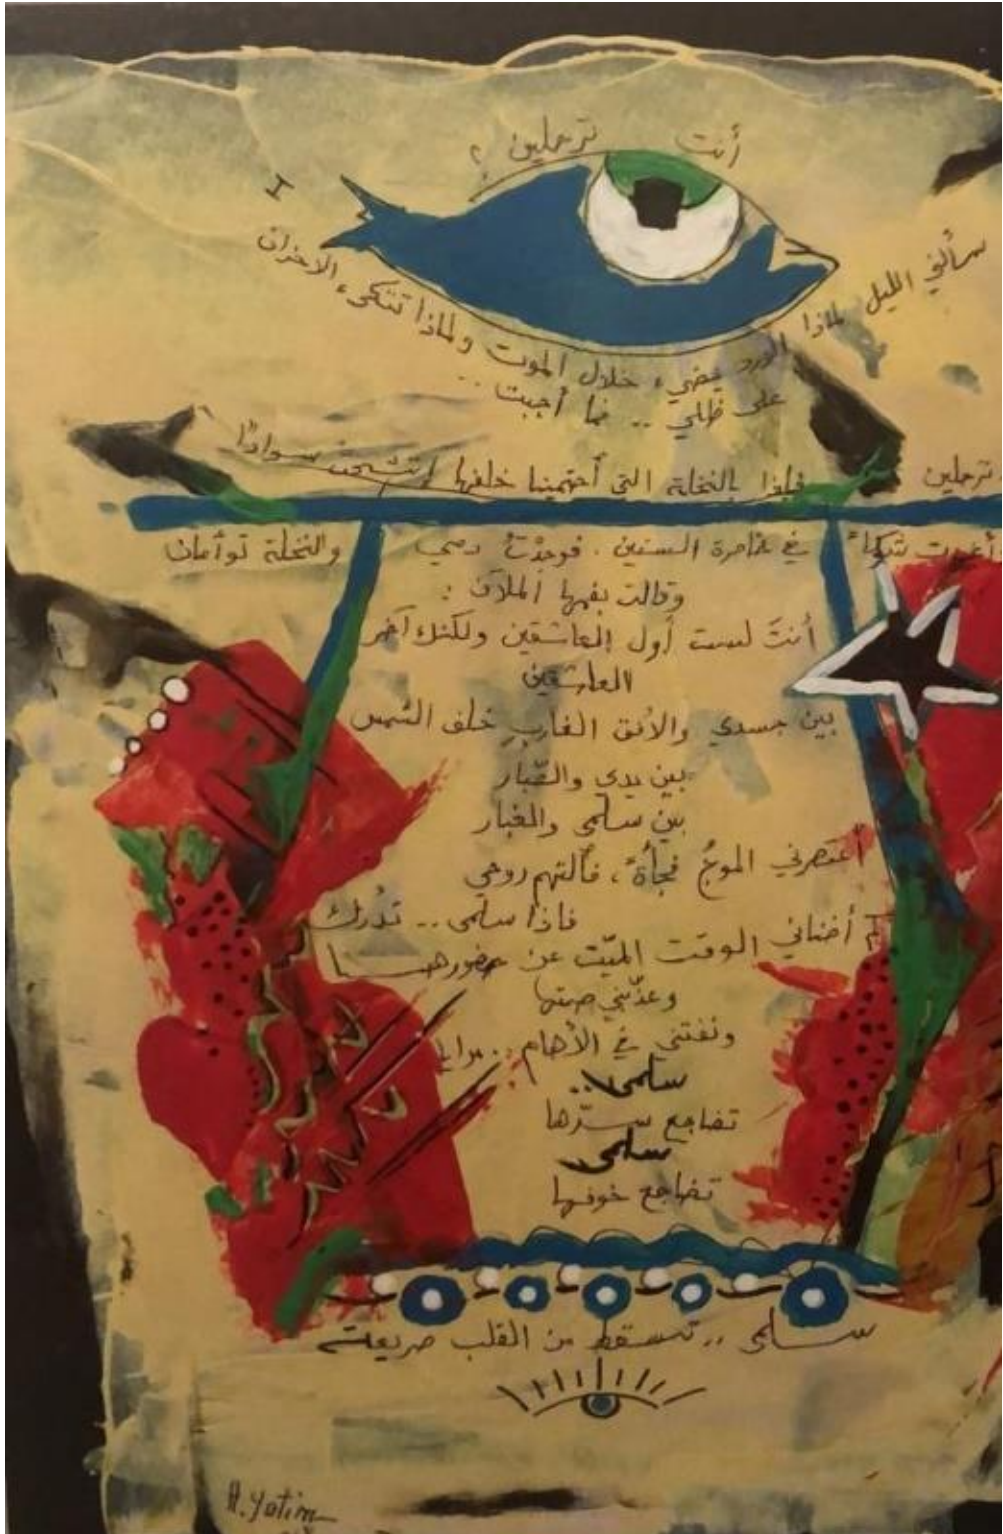 أنت ترحلين ؟
سألني الليل لماذا الورد يضيء خلال الموت ولماذا تتكىء الاحزان
على ظلي .. فما أجبت ..
ترحلين
بالنخلة التي أحتمينا خلفها اتشحت سوادًا
في خاصرة السنين . فوجدْتُ دمي والنخلة توأمان
وقالت بفمها الملآن :
أنتَ لست أول العاشقين ولكنك آخر
العاشقين
بين جسدي والأفق الغارب خلف الشمس
بين يدي والصّبار
بين سلمى والغبار
أعتصرني الموجُ فجأةً ، فألتهم روحي
فاذا سلمى .. تدُرك
كم أضناني الوقت الميّت عن حضورهـــا
وعذّبني صمتها
ونفتني في الأحلام .. مرايا
سلمى ..
تضاجع سرّها
سلمى
تضاجع خوفها
سلمى .. تسقط من القلب صريعة
A. Yatim